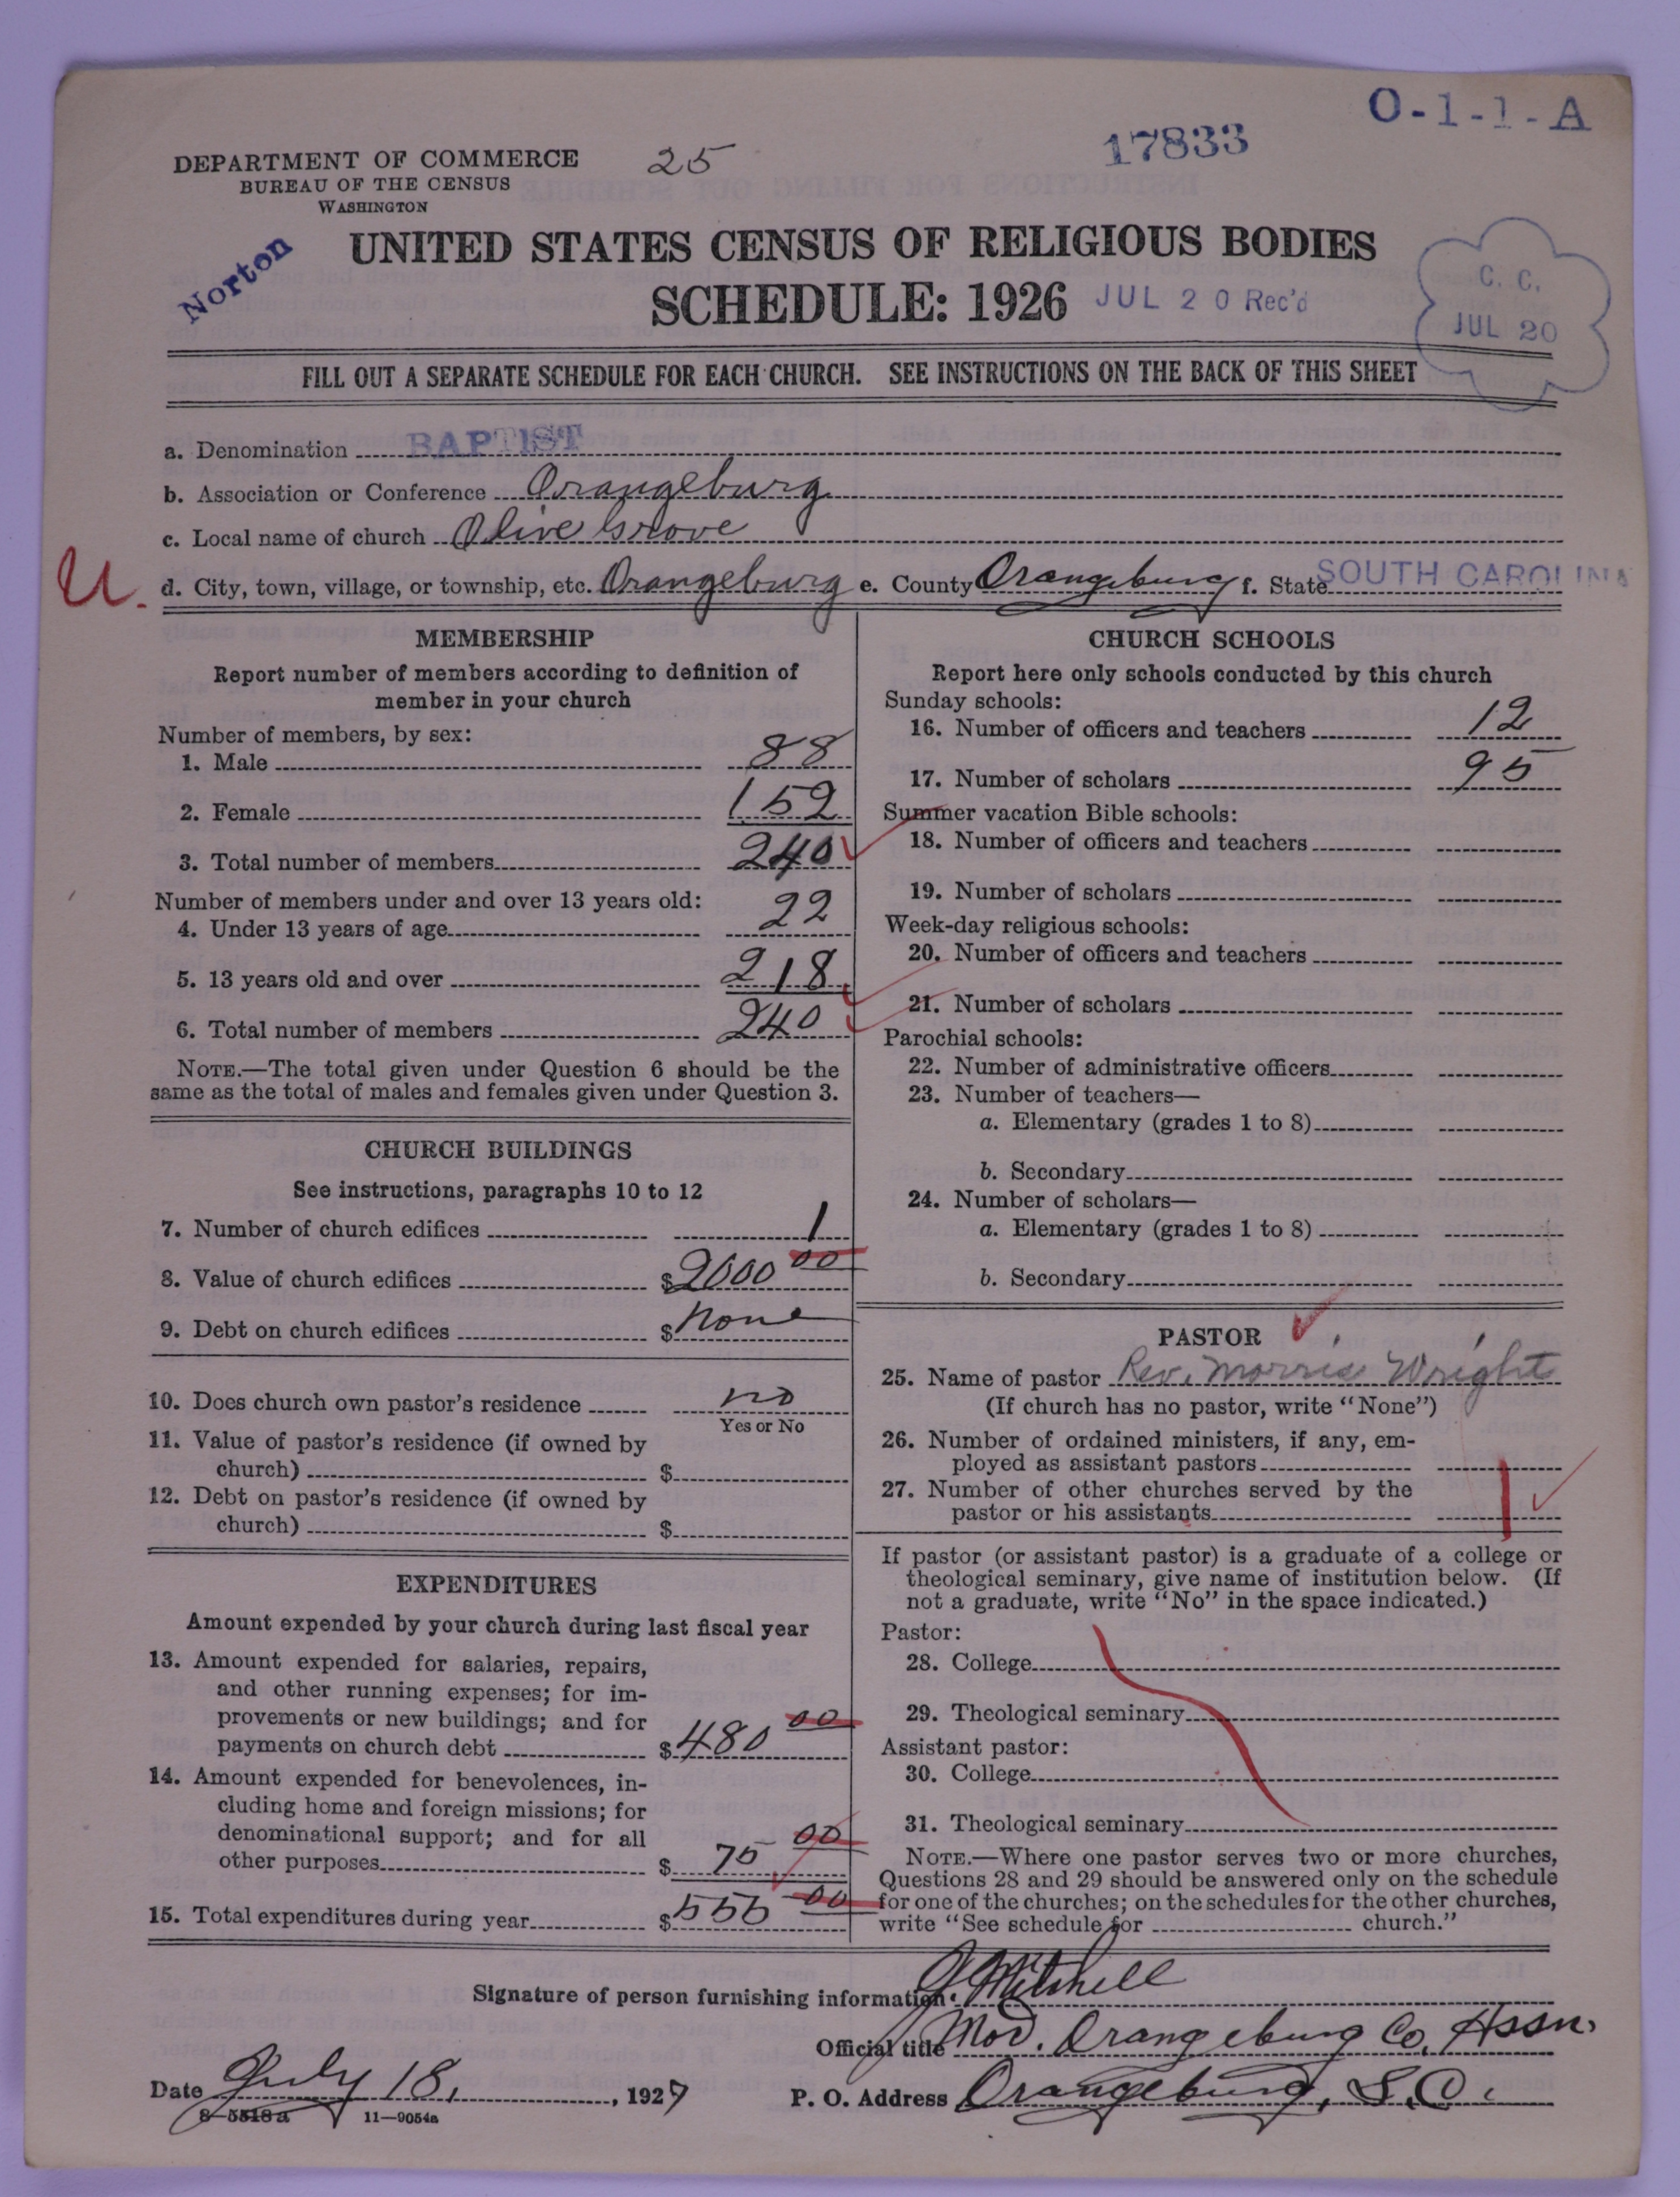 O-1-1-A
17833
25
DEPARTMENT OF COMMERCE
BUREAU OF THE CENSUS
WASHINGTON
Norton
UNITED STATES CENSUS OF RELIGIOUS BODIES
SCHEDULE: 1926
JUL 20 Rec'd
C. C.
JUL 20
FILL OUT A SEPARATE SCHEDULE FOR EACH CHURCH. SEE INSTRUCTIONS ON THE BACK OF THIS SHEET
a. Denomination BAPTIST
b. Association or Conference Orangeburg
c. Local name of church Olive Grove
U. d. City, town, village, or township, etc. Orangeburg e. County Orangeburg f. State SOUTH CAROLINA
MEMBERSHIP
Report number of members according to definition of
member in your church
Number of members, by sex:
1. Male 88
2. Female 152
3. Total number of members 240
Number of members under and over 13 years old:
4. Under 13 years of age 22
5. 13 years old and over 218
6. Total number of members 240
NOTE.—The total given under Question 6 should be the
same as the total of males and females given under Question 3.
CHURCH BUILDINGS
See instructions, paragraphs 10 to 12
7. Number of church edifices 1
8. Value of church edifices $2000 00
9. Debt on church edifices $none
10. Does church own pastor's residence no
Yes or No
11. Value of pastor's residence (if owned by
church) $
12. Debt on pastor's residence (if owned by
church) $
EXPENDITURES
Amount expended by your church during last fiscal year
13. Amount expended for salaries, repairs,
and other running expenses; for im-
provements or new buildings; and for
payments on church debt $480 00
14. Amount expended for benevolences, in-
cluding home and foreign missions; for
denominational support; and for all
other purposes $ 75 00
15. Total expenditures during year $555 00
CHURCH SCHOOLS
Report here only schools conducted by this church
Sunday schools:
16. Number of officers and teachers 12
17. Number of scholars 95
Summer vacation Bible schools:
18. Number of officers and teachers
19. Number of scholars
Week-day religious schools:
20. Number of officers and teachers
21. Number of scholars
Parochial schools:
22. Number of administrative officers
23. Number of teachers—
a. Elementary (grades 1 to 8)
b. Secondary
24. Number of scholars—
a. Elementary (grades 1 to 8)
b. Secondary
PASTOR
25. Name of pastor Rev. Morris Wright
(If church has no pastor, write "None")
26. Number of ordained ministers, if any, em-
ployed as assistant pastors
27. Number of other churches served by the
pastor or his assistants 1
If pastor (or assistant pastor) is a graduate of a college or
theological seminary, give name of institution below. (If
not a graduate, write "No" in the space indicated.)
Pastor:
28. College
29. Theological seminary
Assistant pastor:
30. College
31. Theological seminary
NOTE.—Where one pastor serves two or more churches,
Questions 28 and 29 should be answered only on the schedule
for one of the churches; on the schedules for the other churches,
write "See schedule for church."
Signature of person furnishing information J Mitchell
Official title Mod. Orangeburg Co. Assn.
Date July 18, , 1927 P. O. Address Orangeburg, S.C.
8-5518a 11—9054a